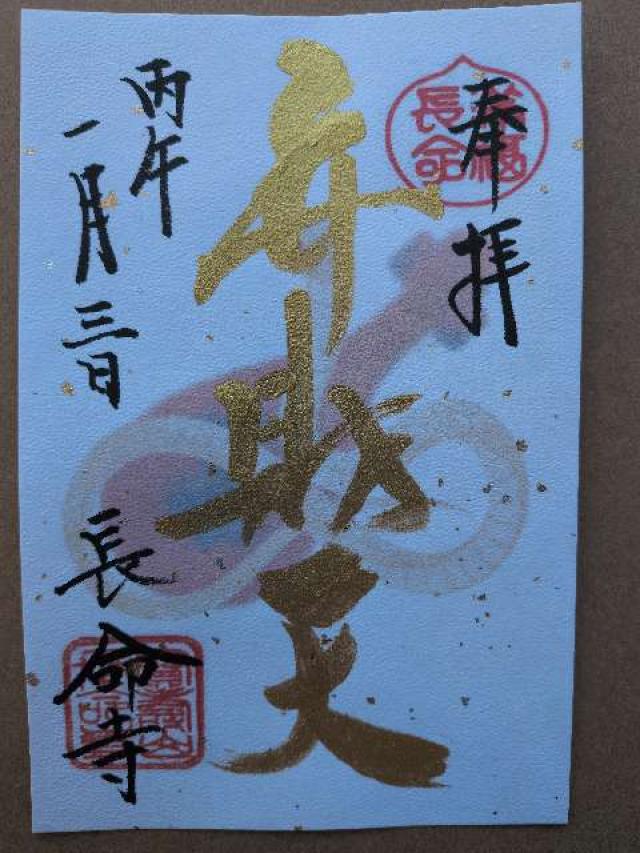 奉拝
弁財天
丙午
一月三日
長命寺
長命